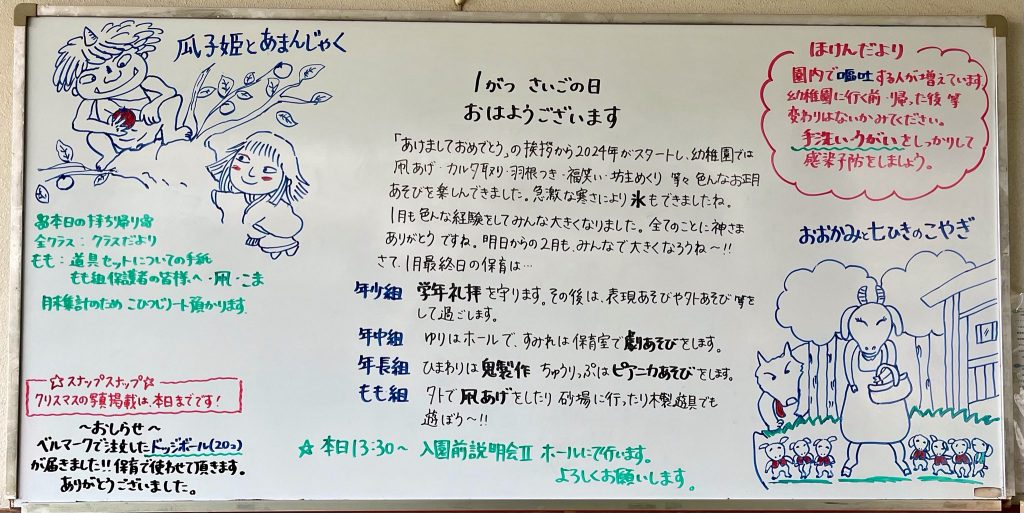 瓜子姫とあまんじゃく
1がつ さいごの日
おはようございます
「あけましておめでとう」の挨拶から2024年がスタートし、幼稚園では
凧あげ・カルタ取り・羽根つき・福笑い・坊主めくり 等々 色んなお正月
あそびを楽しんできました。急激な寒さにより氷もできましたね。
1月も色んな経験をしてみんな大きくなりました。全てのことに神さま
ありがとう ですね。明日からの2月も、みんなで大きくなろうね〜!!
さて、1月最終日の保育は…
年少組 学年礼拝を守ります。その後は、表現あそびや外あそび等を
して過ごします。
年中組 ゆりはホールで、すみれは保育室で劇あそびをします。
年長組 ひまわりは鬼製作 ちゅうりっぷはピアニカあそびをします。
もも組 外で凧あげをしたり 砂場に行ったり木製遊具でも
遊ぼう〜!!
☆本日13:30〜 入園前説明会Ⅱ ホールにて行います。
よろしくお願いします。
本日の持ち帰り
全クラス:クラスだより
もも:道具セットについての手紙
もも組保護者の皆様へ・凧・こま
月末集計のため こひつじノート預かります。
☆スナップスナップ☆
クリスマスの写真掲載は、本日までです!
〜おしらせ〜
ベルマークで注文したドッジボール(20コ)
が届きました!!保育で使わせて頂きます。
ありがとうございました。
ほけんだより
園内で嘔吐する人が増えています
幼稚園に行く前・帰った後 等
変わりはないかみてください。
手洗い・うがいをしっかりして
感染予防をしましょう。
おおかみと七ひきのこやぎ